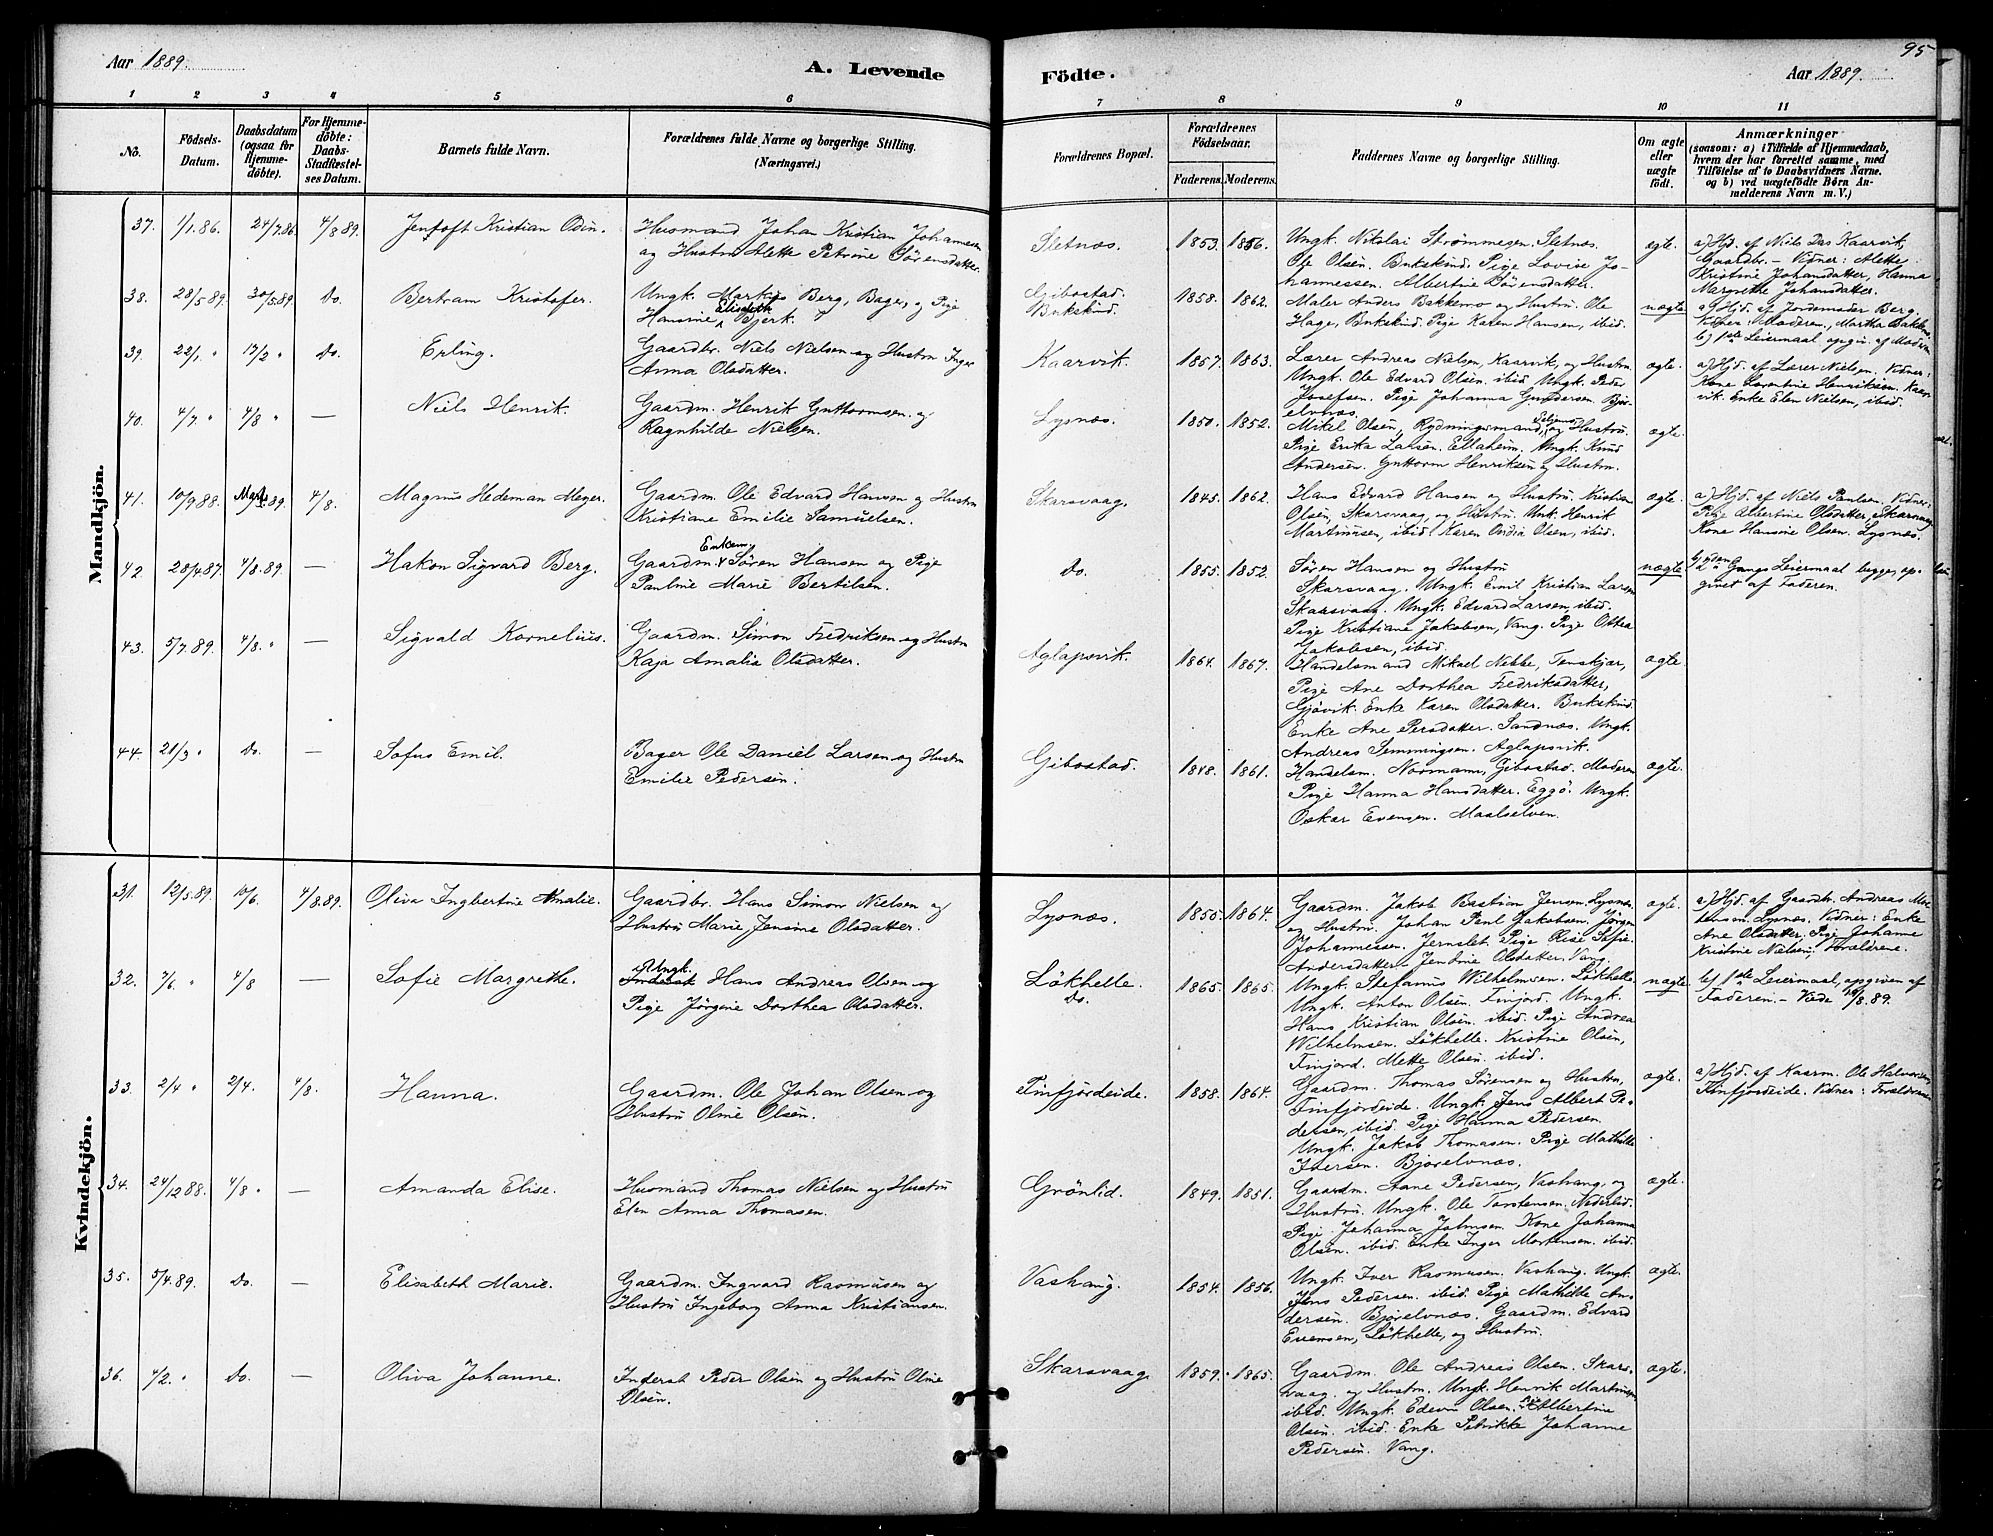 95
Aar 1889.
A. Levende
Födte.
Aar 1889.
1 2 3 4 5 6 7 8 9 10 11
No.
Födsels-
Datum.
Daabsdatum
(ogsaa for
Hjemme-
döbte).
For Hjemme-
döbte:
Daabs-
Stadfæstel-
ses Datum.
Barnets fulde Navn.
Forældrenes fulde Navne og borgerlige Stilling.
(Næringsvei.)
Forældrenes Bopæl.
Forældrenes
Födselsaar.
Faderens. Moderens.
Faddernes Navne og borgerlige Stilling.
Om ægte
eller
uægte
födt.
Anmærkninger
(saasom: a) i Tilfælde af Hjemmedaab,
hvem der har forrettet samme, med
Tilföielse af to Daabsvidners Navne.
og b) ved uægtefödte Börn An-
melderens Navn m. V.)
Mandkjön.
37. 1/1.86. 24/7.86. 4/8 89. Jentoft Kristian Odin.
Husmand Johan Kristian Johannesen
og Hustru Alette Petrine Sörensdatter.
Sletnæs. 1853. 1856.
Ungk. Nikolai Strømmesen. Sletnæs.
Ole Olsen. Bukskind. Pige Lovise Jo-
hannessen. Albertine Sörensdatter.
ægte.
a) Hjd. af Niels Das Kaarvik,
Gaardbr. – Vidner: Alette
Kristine Johansdatter, Hanna
Margrethe Johansdatter.
38. 28/5 89. 30/5.89. Do. Bertram Kristofer.
Ungk. Markus Berg, Bager, og Pige
Hansine Elisabeth Bjerk.
Gibostad.
Bukskind.
1858. 1862.
Maler Anders Bakkemo og Hustru. Ole
Hage, Bukskind. Pige Karen Hansen, ibid.
uægte.
a) Hjd. af Jordemoder Berg.
Vidner: Moderen, Martha Bakkemo
b) 1ste Leiermaal opgiv. af Moderen
39. 22/1 " 17/2 " Do. Erling.
Gaardbr. Niels Nielsen og Hustru Inger
Anna Olsdatter.
Kaarvik. 1857. 1863.
Lærer Andreas Nielsen, Kaarvik, og Hustru.
Ungk. Ole Edvard Olsen, ibid. Ungk. Peder
Josefsen. Pige Johanna Gundersen. Bjor-
elvnæs.
ægte.
a) Hjd. af Lærer Nielsen. Vidner:
Kone Laurentine Henriksen. Kaar-
vik. Enke Elen Nielsen, ibid.
40. 4/7 " 4/8 " — Niels Henrik.
Gaardm. Henrik Guttormsen og
Ragnhilde Nielsen.
Lysnæs. 1850. 1852.
Mikel Olsen, Rydningsmand, og Hustru.
Pige Erika Larsen. Ellaheim. Ungk. Knud
Andersen. Guttorm Henriksen og Hustru.
ægte.
41. 10/9 88. 89. 4/8. Magnus Hedeman Meyer.
Gaardm. Ole Edvard Hansen og Hustru
Kristiane Emilie Samuelsen.
Skarsvaag. 1845. 1862.
Hans Edvard Hansen og Hustru. Kristian
Olsen, Skarsvaag, og Hustru. Unk. Henrik
Martinusen, ibid. Karen Ovidia Olsen, ibid.
ægte.
a) Hjd. af Niels Paulsen. Vidner:
Pige Albertine Olsdatter, Skarsvaag
Kone Hansine Olsen. Lysnæs.
42. 28/4 87. 4/8.89. Hakon Sigvard Berg.
Gaardm. Enkem. Sören Hansen og Pige
Pauline Marie Bertilsen.
Do. 1855. 1852.
Sören Hansen og Hustru
Skarsvaag. Ungk. Emil Kristian Larsen
Skarsvaag. Ungk. Edvard Larsen, ibid.
Pige Kristiane Jakobsen, Vang. Pige Othea
Jakobsen, ibid.
uægte
b) 2den Gangs Leiermaal begge, op-
givet af Faderen.
43. 5/7.89. 4/8. " — Sigvald Kornelius.
Gaardm. Simon Fredriksen og Hustru
Kaja Amalia Olsdatter.
Aglapsvik. 1864. 1867.
Handelsmand Mikael Nebbe, Tenskjær,
Pige Ane Dorthea Fredriksdatter,
Gjövik. Enke Karen Olsdatter. Bukskind.
Enke Ane Persdatter. Sandnæs. Ungk.
Andreas Semmingsen. Aglapsvik.
ægte.
44. 21/3 " Do. — Sofus Emil.
Bager Ole Daniel Larsen og Hustru
Emilie Pedersen.
Gibostad. 1848. 1861.
Handelsm. Normann, Gibostad. Moderen
Pige Hanna Hansdatter. Eggö. Ungk.
Oskar Evensen. Maalselven.
ægte.
Kvindekjön.
31. 12/5.89. 10/6. 4/8.89. Oliva Ingbertine Amalie.
Gaardbr. Hans Simon Nielsen og
Hustru Marie Jensine Olsdatter.
Lysnæs. 1855. 1864.
Gaardm. Jakob Bastian Jensen, Lysnæs,
og Hustru. Johan Paul Jakobsen. Jörgen
Johannessen. Jernslet. Pige Elise Sofie
Andersdatter. Jendine Olsdatter. Vang.
ægte.
a) Hjd. af Gaardbr. Andreas Mor-
tensen. Lysnæs. Vidner: Enke
Ane Olsdatter. Pige Johanne
Kristine Nielsen; Forældrene.
32. 7/6. " 4/8 — Sofie Margrethe.
Ungk. Hans Andreas Olsen og
Pige Jörgine Dorthea Olsdatter.
Lökhelle.
Do.
1865. 1865.
Ungk. Stefanus Wilhelmsen. Lökhelle
Ungk. Anton Olsen. Finjord. Ungk.
Hans Kristian Olsen. ibid. Pige Andrea
Wilhelmsen. Lökhelle. Kristine Olsen,
Finjord. Mette Olsen. ibid.
uægte.
b) 1ste Leiermaal, opgiven af
Faderen.
33. 2/4 " 2/4. 4/8. Hanna.
Gaardm. Ole Johan Olsen og
Hustru Oline Olsen.
Finfjordeide. 1858. 1864.
Gaardm. Thomas Sörensen og Hustru,
Finfjordeide. Ungk. Jens Albert Pe-
dersen, ibid. Pige Hanna Pedersen.
Ungk. Jakob Thomasen. Pige Mathilde
Iversen. Bjorelvnæs.
ægte.
a) Hjd. af Kaarm. Ole Halvorsen,
Finfjordeide. Vidner: Forældrene
34. 24/12 88. 4/8 " — Amanda Elise.
Husmand Thomas Nielsen og Hustru
Elen Anna Thomasen.
Grönlid. 1849. 1851.
Gaardm. Aane Pedersen, Vashaug, og
Hustru. Ungk. Ole Torstensen. Nederlid.
Pige Johanna Johnsen. Kone Johanna
Olsen. ibid. Enke Inger Mortensen. ibid.
ægte.
35. 5/4.89. Do. — Elisabeth Marie.
Gaardm. Ingvard Rasmusen og
Hustru Ingeborg Anna Kristiansen.
Vashaug. 1854. 1856.
Ungk. Iver Rasmusen. Vashaug. Ungk.
Jens Pedersen. ibid. Pige Mathilde An-
dersen. Bjorelvnæs. Gaardm. Edvard
Evensen, Lökhelle, og Hustru.
ægte.
36. 4/2. " Do. — Oliva Johanne.
Inderst Peder Olsen og Hustru Oline
Olsen.
Skarsvaag. 1859. 1865.
Gaardm. Ole Andreas Olsen. Skars-
vaag. og Hustru. Ungk. Henrik Martinusen
ibid. Ungk. Edevin Olsen. Albertine
Olsen. ibid. Enke Petrikke Johanne
Pedersen. Vang.
ægte.